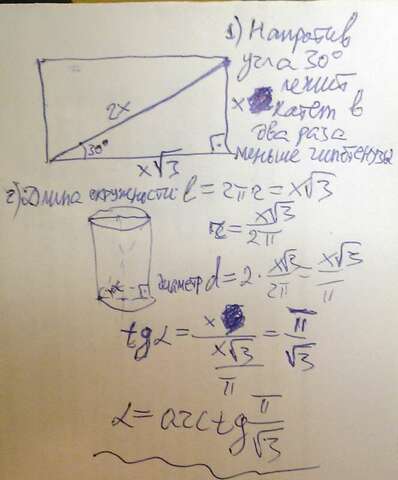 1) Напротив
угла 30°
лежит
x катет в
два раза
меньше гипотенузы
2x
30°
x√3
2) Длина окружности: l = 2πr = x√3
r = x√3 / 2π
диаметр d = 2 · x√3 / 2π = x√3 / π
tgα = x / (x√3 / π) = π / √3
α = arctg π / √3